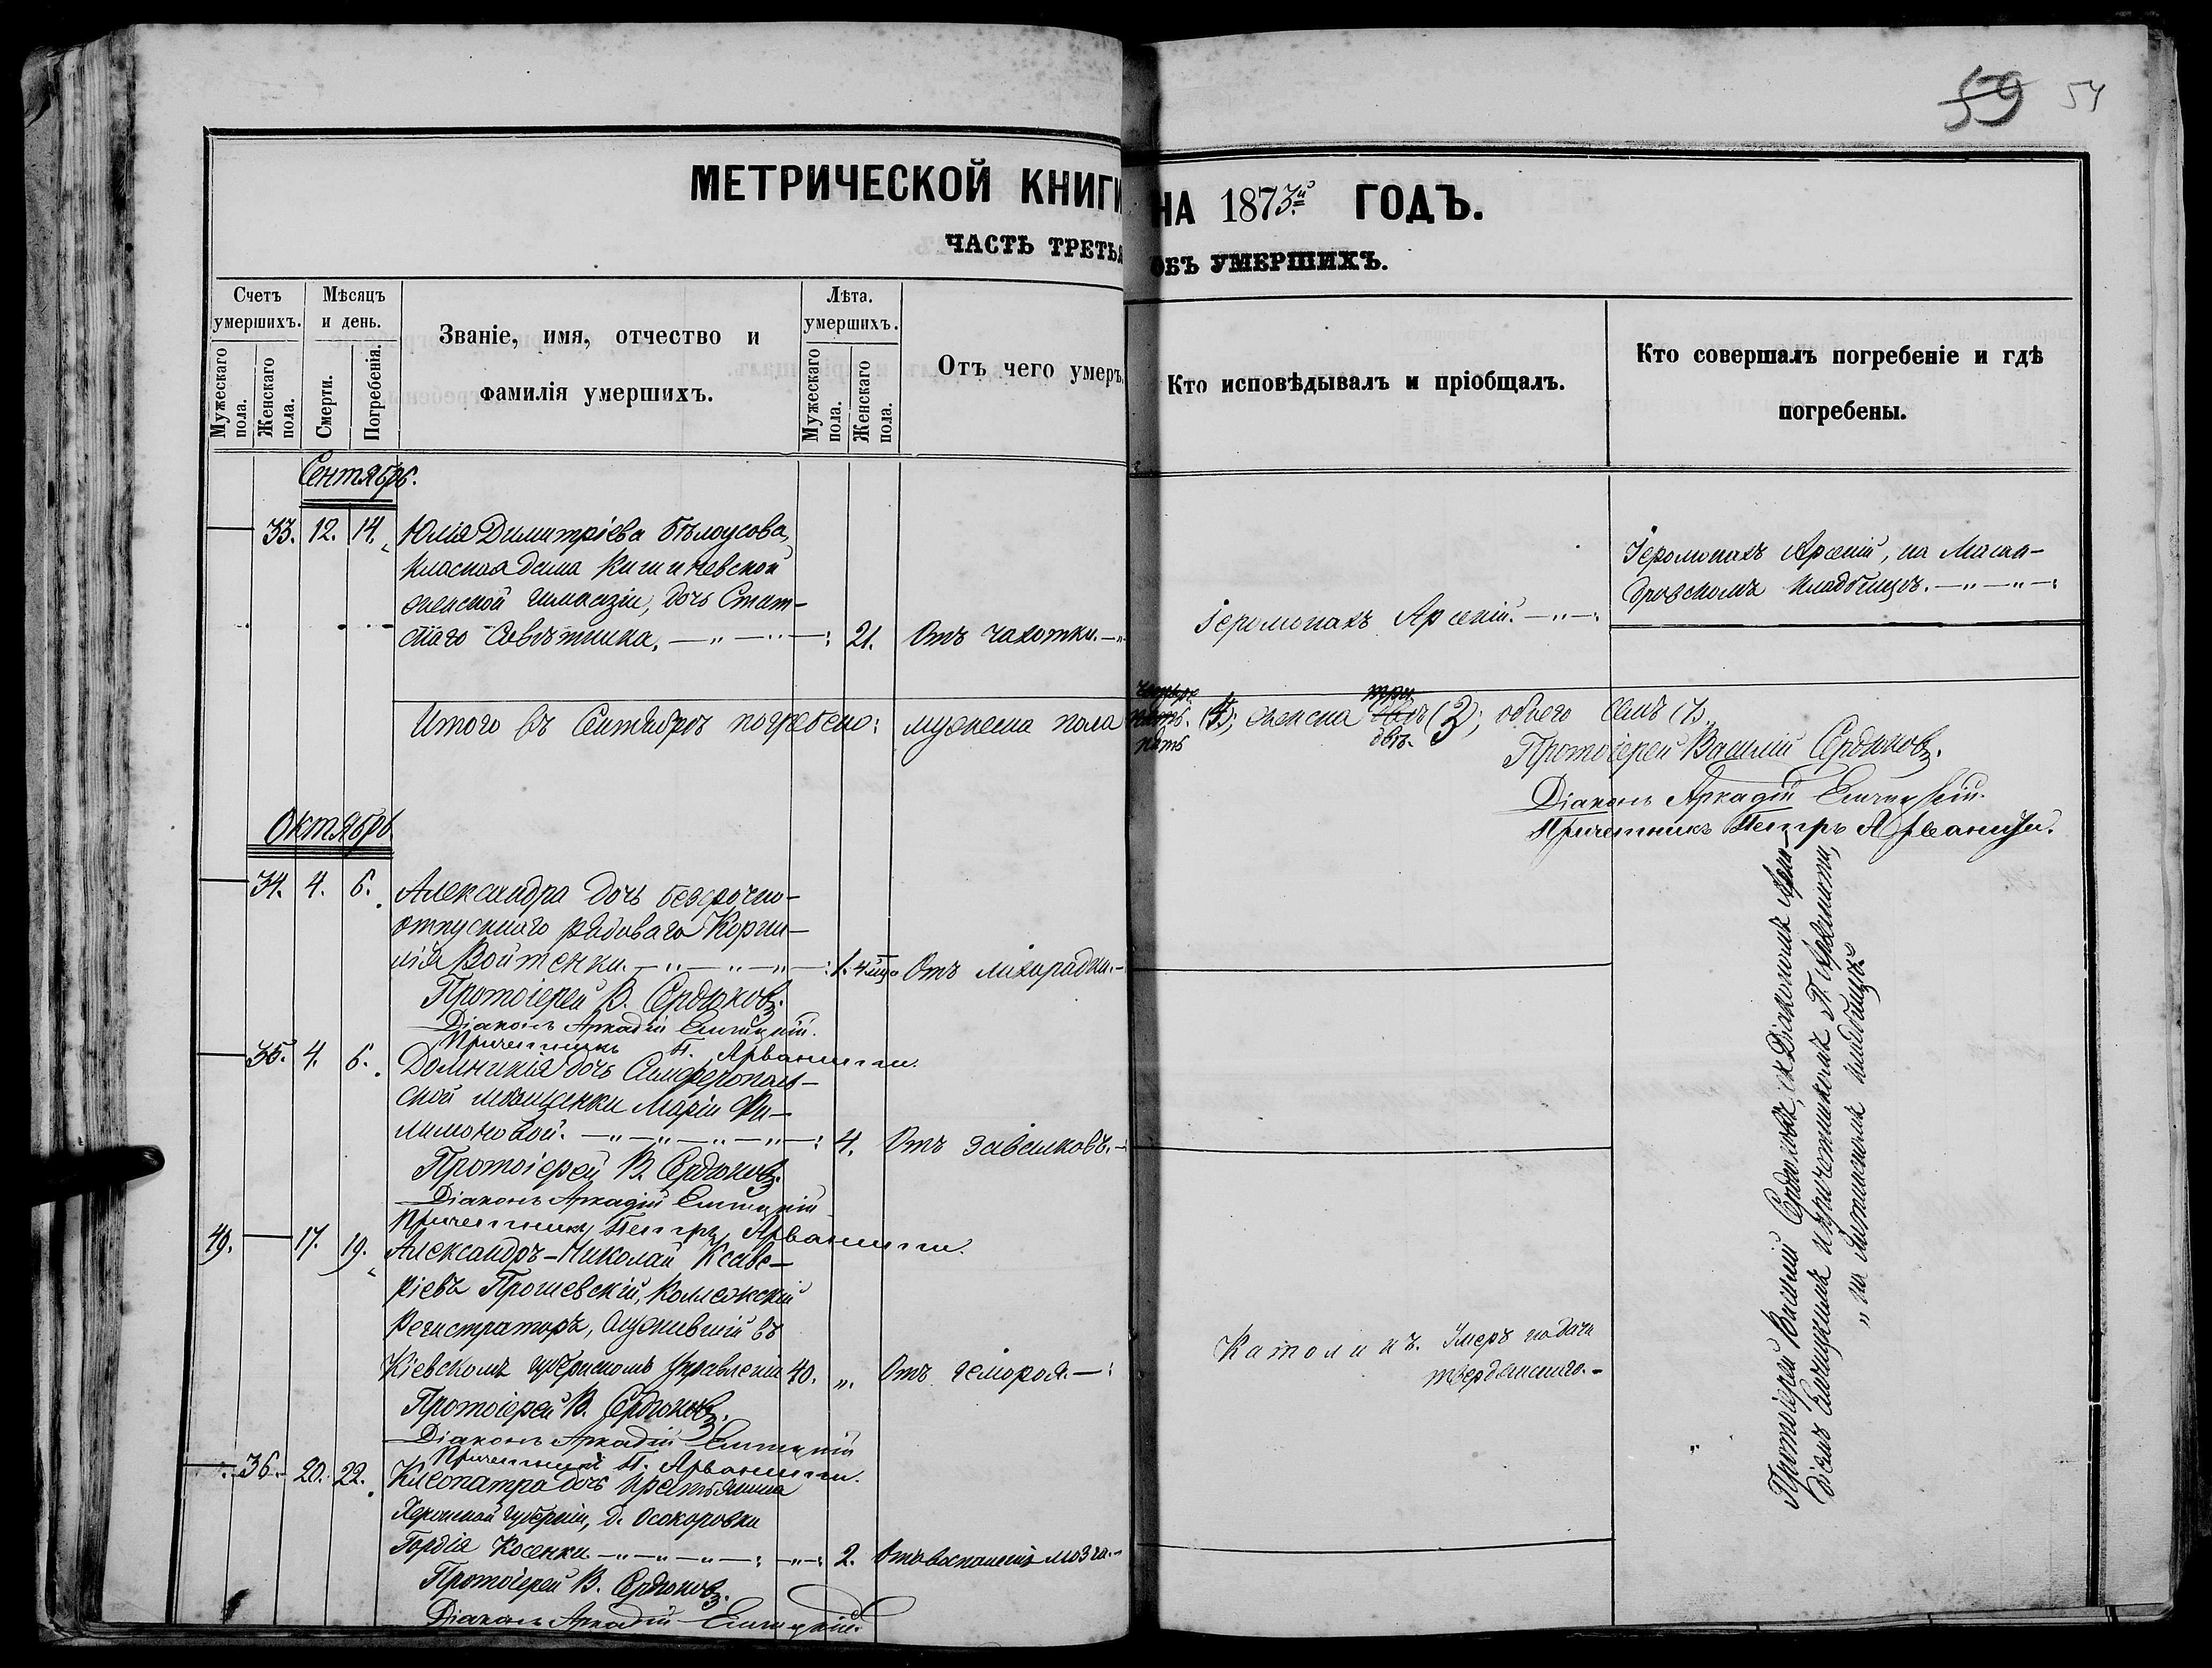 59 54
МЕТРИЧЕСКОЙ КНИГИ НА 1873й ГОДЪ.
ЧАСТЬ ТРЕТЬЯ ОБЪ УМЕРШИХЪ.
Счетъ умершихъ.
Мужескаго пола.
Женскаго пола.
Мѣсяцъ и день.
Смерти.
Погребенія.
Званіе, имя, отчество и
фамилія умершихъ.
Лѣта. умершихъ.
Мужескаго пола.
Женскаго пола.
Отъ чего умеръ.
Кто исповѣдывалъ и пріобщалъ.
Кто совершалъ погребеніе и гдѣ
погребены.
Сентябрь.
33. 12. 14. Юлія Димитріева Бѣлоусова,
класная дама Кишиневской
женской гимназіи, дочь Стат-
скаго Совѣтника. 21. Отъ чахотки.
Іеромонахъ Арсеній.
Іеромонахъ Арсеній, на Масан-
дровскомъ кладбищѣ.
Итого въ Сентябрѣ погребено: мужеска пола пять женска три двѣ (3); обоего семь (7).
пять двѣ.
Протоіерей Василій Сердюковъ.
Діаконъ Аркадій
Причетникъ Петръ Арванити.
Октябрь
34. 4. 6. Александра дочь безсрочно-
отпускнаго рядоваго Корни-
лія Войтенки. 1. 4 Отъ лихорадки.
Протоіерей В. Сердюковъ.
Діаконъ Аркадій
Причетникъ П. Арванити.
35. 4. 6. Домникія дочь Симферополь-
ской мѣщанки Маріи Фи-
лимоновой. 4. Отъ завалковъ.
Протоіерей В. Сердюковъ.
Діаконъ Аркадій
Причетникъ Петръ Арванити.
49. 17. 19. Александръ-Николай Ксаве-
ріевъ Прошевскій, Коллежскій
Регистраторъ, служившій въ
Кіевскомъ Управленіи 40. „ Отъ гемороя.
Католикъ. Умеръ на дачѣ
Протоіерей В. Сердюковъ.
Діаконъ Аркадій
Причетникъ П. Арванити.
36. 20. 22. Клеопатра дочь крестьянина
Херсонской губерніи, д. Осокоровки
Гордія Косенки. 2. Отъ воспаленія мозга.
Протоіерей В. Сердюковъ.
Діаконъ Аркадій
Протоіерей Василій Сердюковъ, съ Діакономъ Арка-
діемъ и причетникомъ П. Арванити,
на кладбищѣ